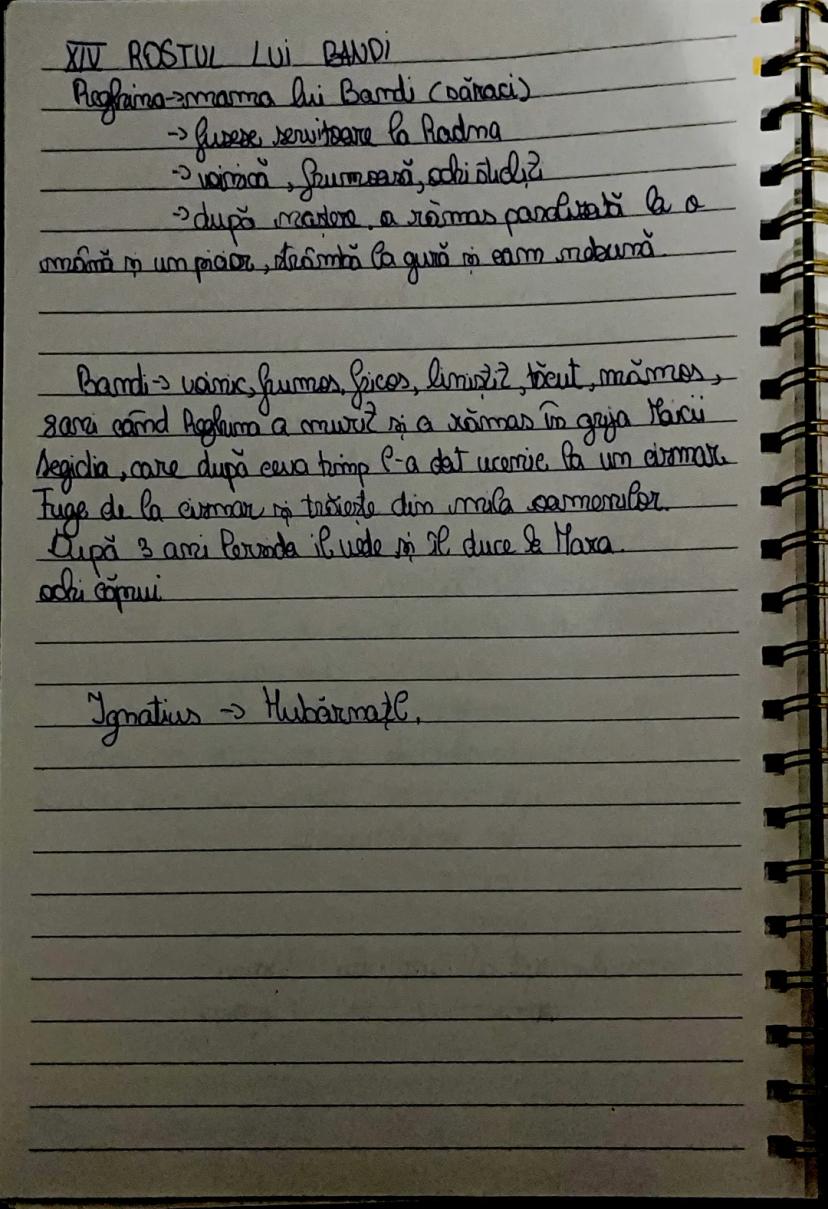 XIV ROSTUL LUI BANDI
Reghina→mama lui Bandi (săraci)
→ fusese servitoare la Radna
→ voinică, frumoasă, ochi sticliți
→ după naștere, a rămas paralizată la o
mână și un picior, strâmbă la gură și cam nebună.
Bandi→ voinic, frumos, fricos, liniștit, tăcut, mămos,
8 ani când Reghina a murit și a rămas în grija Maicii
Aegidia, care după ceva timp l-a dat ucenic la un cismar.
Fuge de la cismar și trăiește din mila oamenilor.
După 3 ani Persida îl vede și îl duce la Mara.
ochi căprui
Ignatius → Hubărnațl,